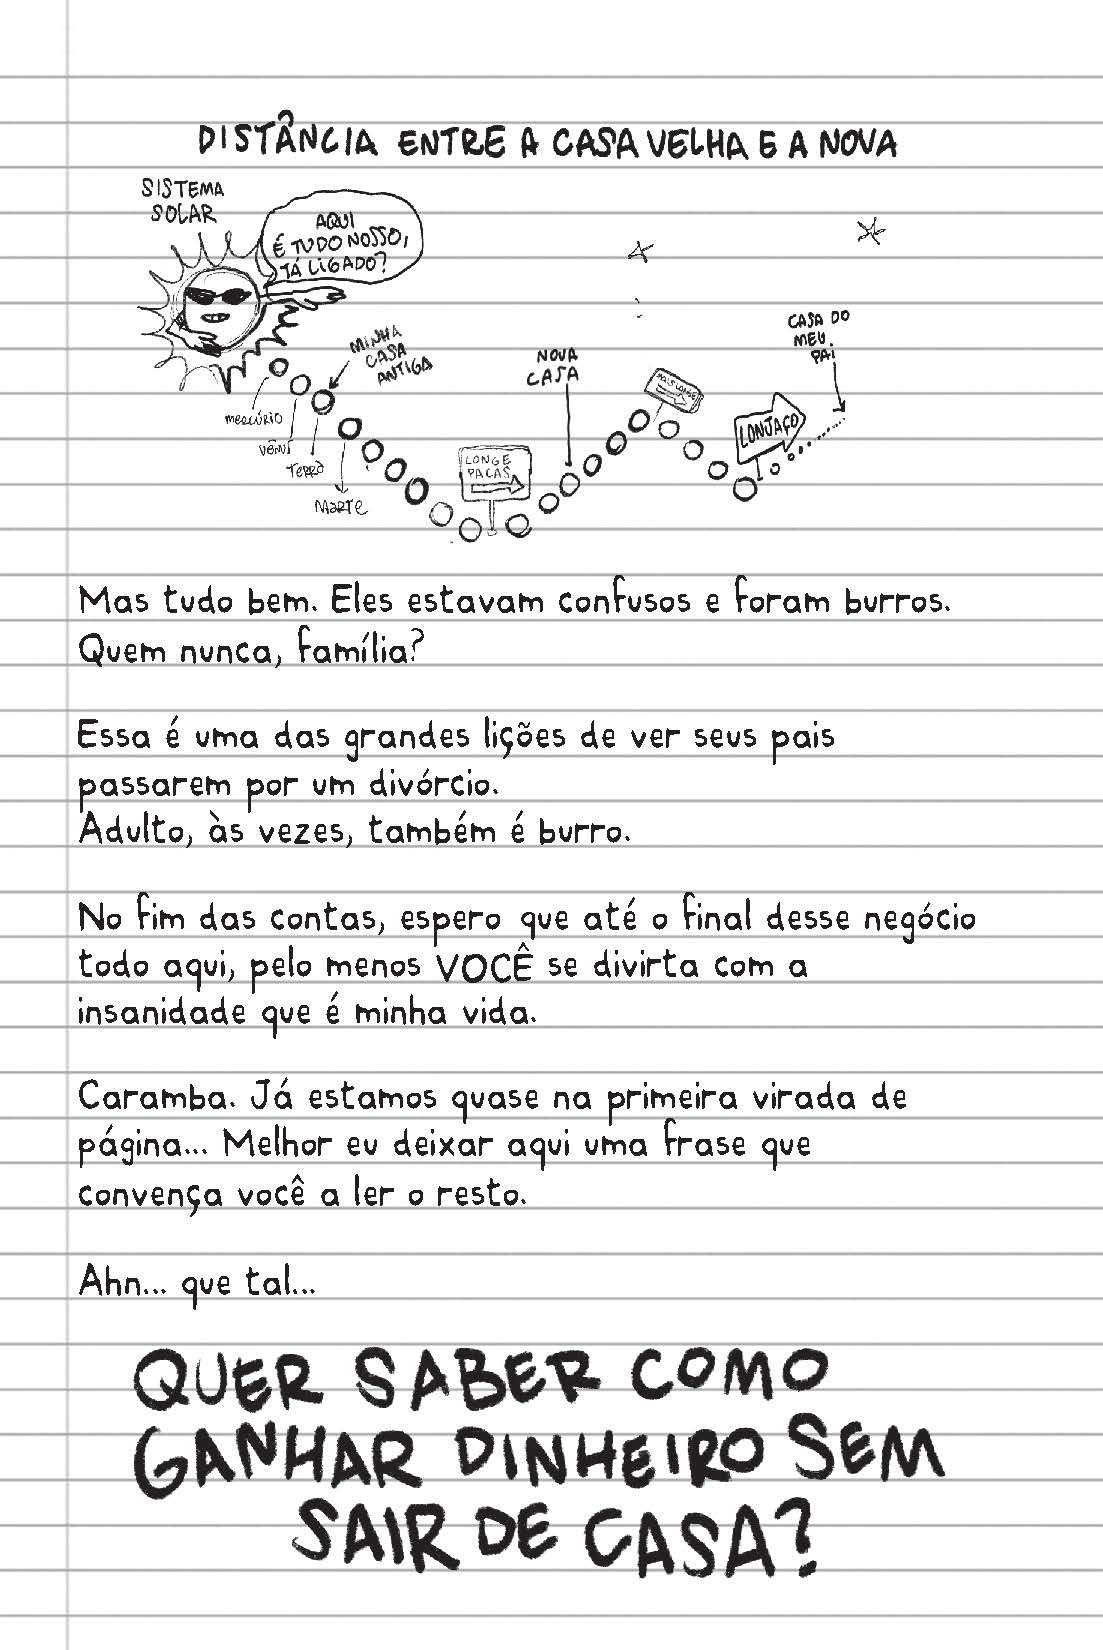 DISTÂNCIA ENTRE A CASA VELHA E A NOVA
SISTEMA
SOLAR
AQUI
É TUDO NOSSO,
TÁ LIGADO?
MINHA
CASA
ANTIGA
MERCÚRIO
VÊNUS
TERRA
MARTE
LONGE
PACAS
NOVA
CASA
MAIS LONGE
LONJAÇO
CASA DO
MEU
PAI
Mas tudo bem. Eles estavam confusos e foram burros.
Quem nunca, família?
Essa é uma das grandes lições de ver seus pais
passarem por um divórcio.
Adulto, às vezes, também é burro.
No fim das contas, espero que até o final desse negócio
todo aqui, pelo menos VOCÊ se divirta com a
insanidade que é minha vida.
Caramba. Já estamos quase na primeira virada de
página... Melhor eu deixar aqui uma frase que
convença você a ler o resto.
Ahn... que tal...
QUER SABER COMO
GANHAR DINHEIRO SEM
SAIR DE CASA?